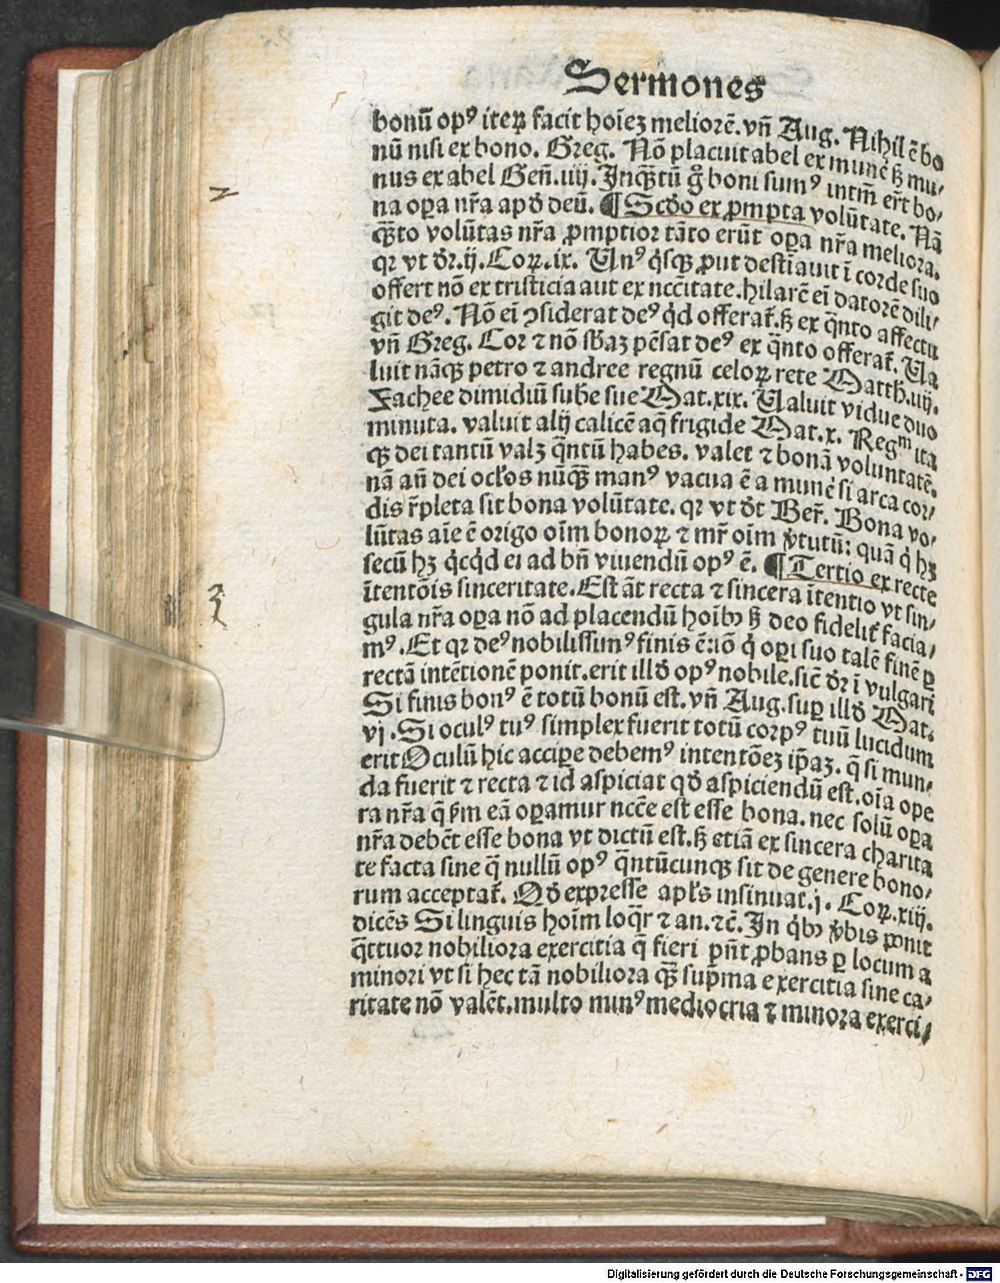 Sermones
bonū opꝰ iteꝝ facit hoīeꝫ meliorē. vñ Aug. Nihil ē bo
nū nisi ex bono. Greg. Nō placuit abel ex munē ſꝫ mu-
nus ex abel Geñ. iiij. Inqꝫtū gͦ boni sumꝰ intm̄ er̄t bo-
na oꝑa nr̄a apð deū. ¶ Scðo ex ꝓmpta volūtate. Nā
qꝫto volūtas nr̄a ꝓmptior tāto erūt oꝑa nr̄a meliora.
qꝛ vt ðr. ij. Coꝝ. ix. Unꝰ qͥsqꝫ ꝓut destīauit ī corde suo
offert nō ex tristicia aut ex nccītate. hilarē eī datorē dili-
git deꝰ. Nō eī ꝯsiderat deꝰ qͥd offerat̄. ſꝫ ex qͣnto affectu
vñ Greg. Cor ⁊ nō sb̄aꝫ pēsat deꝰ ex qͣnto offerat̄. Ua
luit nāqꝫ petro ⁊ andree regnū celoꝝ rete Matth. iiij.
Zachee dimidiū sub̄e sue Mat. xix. Ualuit vidue duo
minuta. valuit alij calicē aq̄ frigide Mat. x. Regᵐ ita
qꝫ dei tantū valꝫ qͣntū habes. valet ⁊ bonā voluntatē.
nā añ dei ocl̓os nūqꝫ manꝰ vacua ē a munē si arca cor-
dis r̄pleta sit bona volūtate. qꝛ vt ðt Ber̄. Bona vo-
lūtas aīe ē origo oīm bonoꝝ ⁊ mr̄ oīm v̓tutū: quā qͥ hꝫ
secū hꝫ qͥcqͥd ei ad bn̄ viuendū opꝰ ē. ¶ Tertio ex recte
ītentōis sinceritate. Est āt recta ⁊ sincera ītentio vt sin-
gula nr̄a oꝑa nō ad placendū hoībꝫ ſꝫ deo fidelit̓ facia-
mꝰ. Et qꝛ deꝰ nobilissimꝰ finis ē: iō qͥ oꝑi suo talē finē ꝑ
rectā intētionē ponit. erit illð opꝰ nobile. sic̄ ðr ī vulgari
Si finis bonꝰ ē totū bonū est. vñ Aug. suꝑ illð Mat.
vj. Si oculꝰ tuꝰ simplex fuerit totū corpꝰ tuū lucidum
erit Oculū hic acciꝑe debemꝰ intentōeꝫ ip̄aꝫ. q̄ si mun-
da fuerit ⁊ recta ⁊ id aspiciat qð aspiciendū est. oīa ope
ra nr̄a q̄ ẜm eā oꝑamur nccē est esse bona. nec solū oꝑa
nr̄a debēt esse bona vt dictū est. ſꝫ etiā ex sincera charita
te facta sine q̄ nullū opꝰ qͣntūcunqꝫ sit de genere bono-
rum acceptat̄. Qð expresse apl̓s insinuat. j. Coꝝ. xiij.
dicēs Si linguis hoīm loq̄r ⁊ an. ⁊c̄. In qͥbꝫ v̓bis ponit
qͣttuor nobiliora exercitia q̄ fieri pn̄t ꝓbans ꝑ locum a
minori vt si hec tā nobiliora qꝫ sup̄ma exercitia sine ca-
ritate nō valēt. multo minꝰ mediocria ⁊ minora exerci-
Digitalisierung gefördert durch die Deutsche Forschungsgemeinschaft - DFG